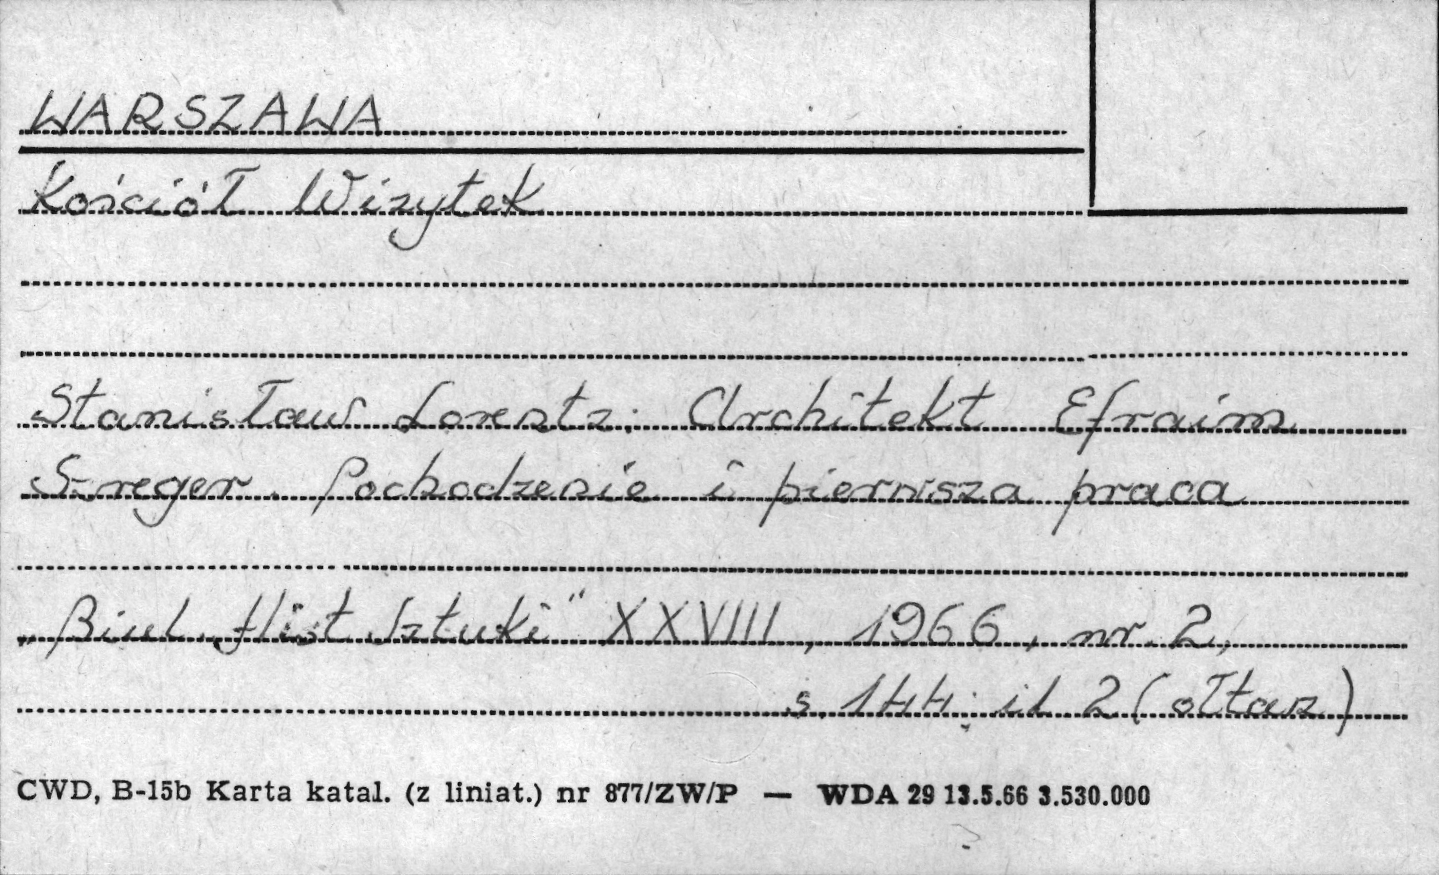 WARSZAWA
Kościół Wizytek
Stanisław Lorentz: Architekt Efraim
Szreger. Pochodzenie i pierwsza praca
„Biul. Hist Sztuki" XXVIII, 1966, nr. 2,
s. 144; il 2 (ołtarz)
CWD, B-15b Karta katal. (z liniat.) nr 877/ZW/P — WDA 29 13.5.66 3.530.000